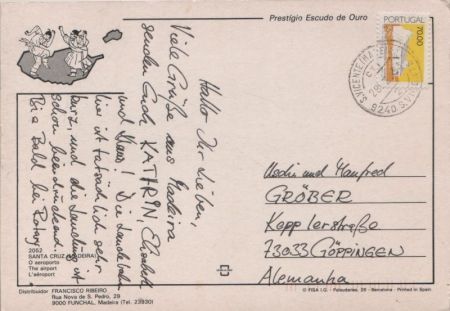 Prestígio Escudo de Ouro
PORTUGAL
70.00
S. VICENTE (MADEIRA)
9240 S. VICENTE
Hallo Ihr Lieben,
Viele Grüße aus Madeira
senden Euch KATHRIN Elisabeth
und Klaus! Die Landebahn
hier ist tatsächlich sehr
kurz, und die Landung ist
schon beeindruckend.
Bis Bald bei Rotary
und Manfred
GRÖBER
Kepplerstraße
73033 GÖPPINGEN
Alemanha
2052
SANTA CRUZ (MADEIRA)
O aeroporto
The airport
L'aéroport
Distribuidor FRANCISCO RIBEIRO
Rua Nova de S. Pedro, 29
9000 FUNCHAL, Madeira (Tel. 23930)
© FISA I.G. - Palaudarias, 26 - Barcelona - Printed in Spain